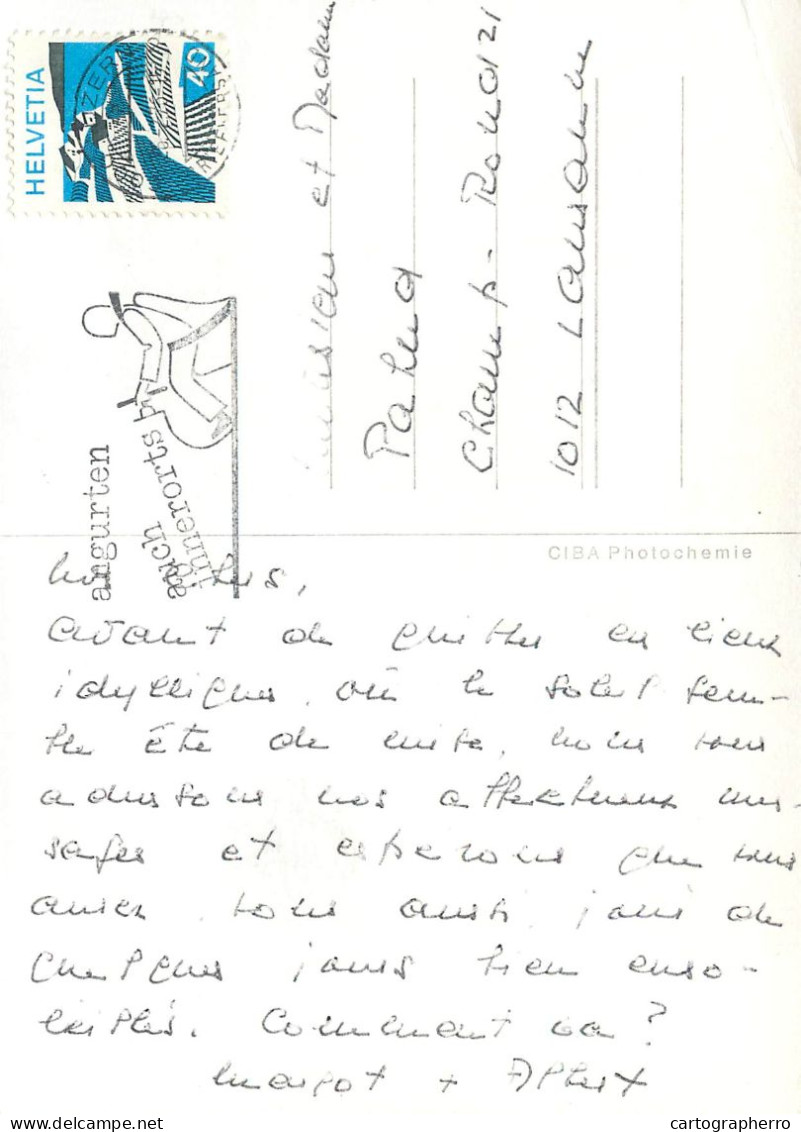 HELVETIA
40
angurten
auch
innerorts
Monsieur et Madame
Champ-Rond 21
1012 Lausanne
CIBA Photochemie
avant de quitter ces lieux
idylliques, où le soleil sem-
ble être de mise, nous vous
adressons nos affectueux mes-
sages et espérons que vous
avez, vous aussi, joui de
quelques jours bien enso-
leillés. Comment va?
Margot + Albert
cartographerro